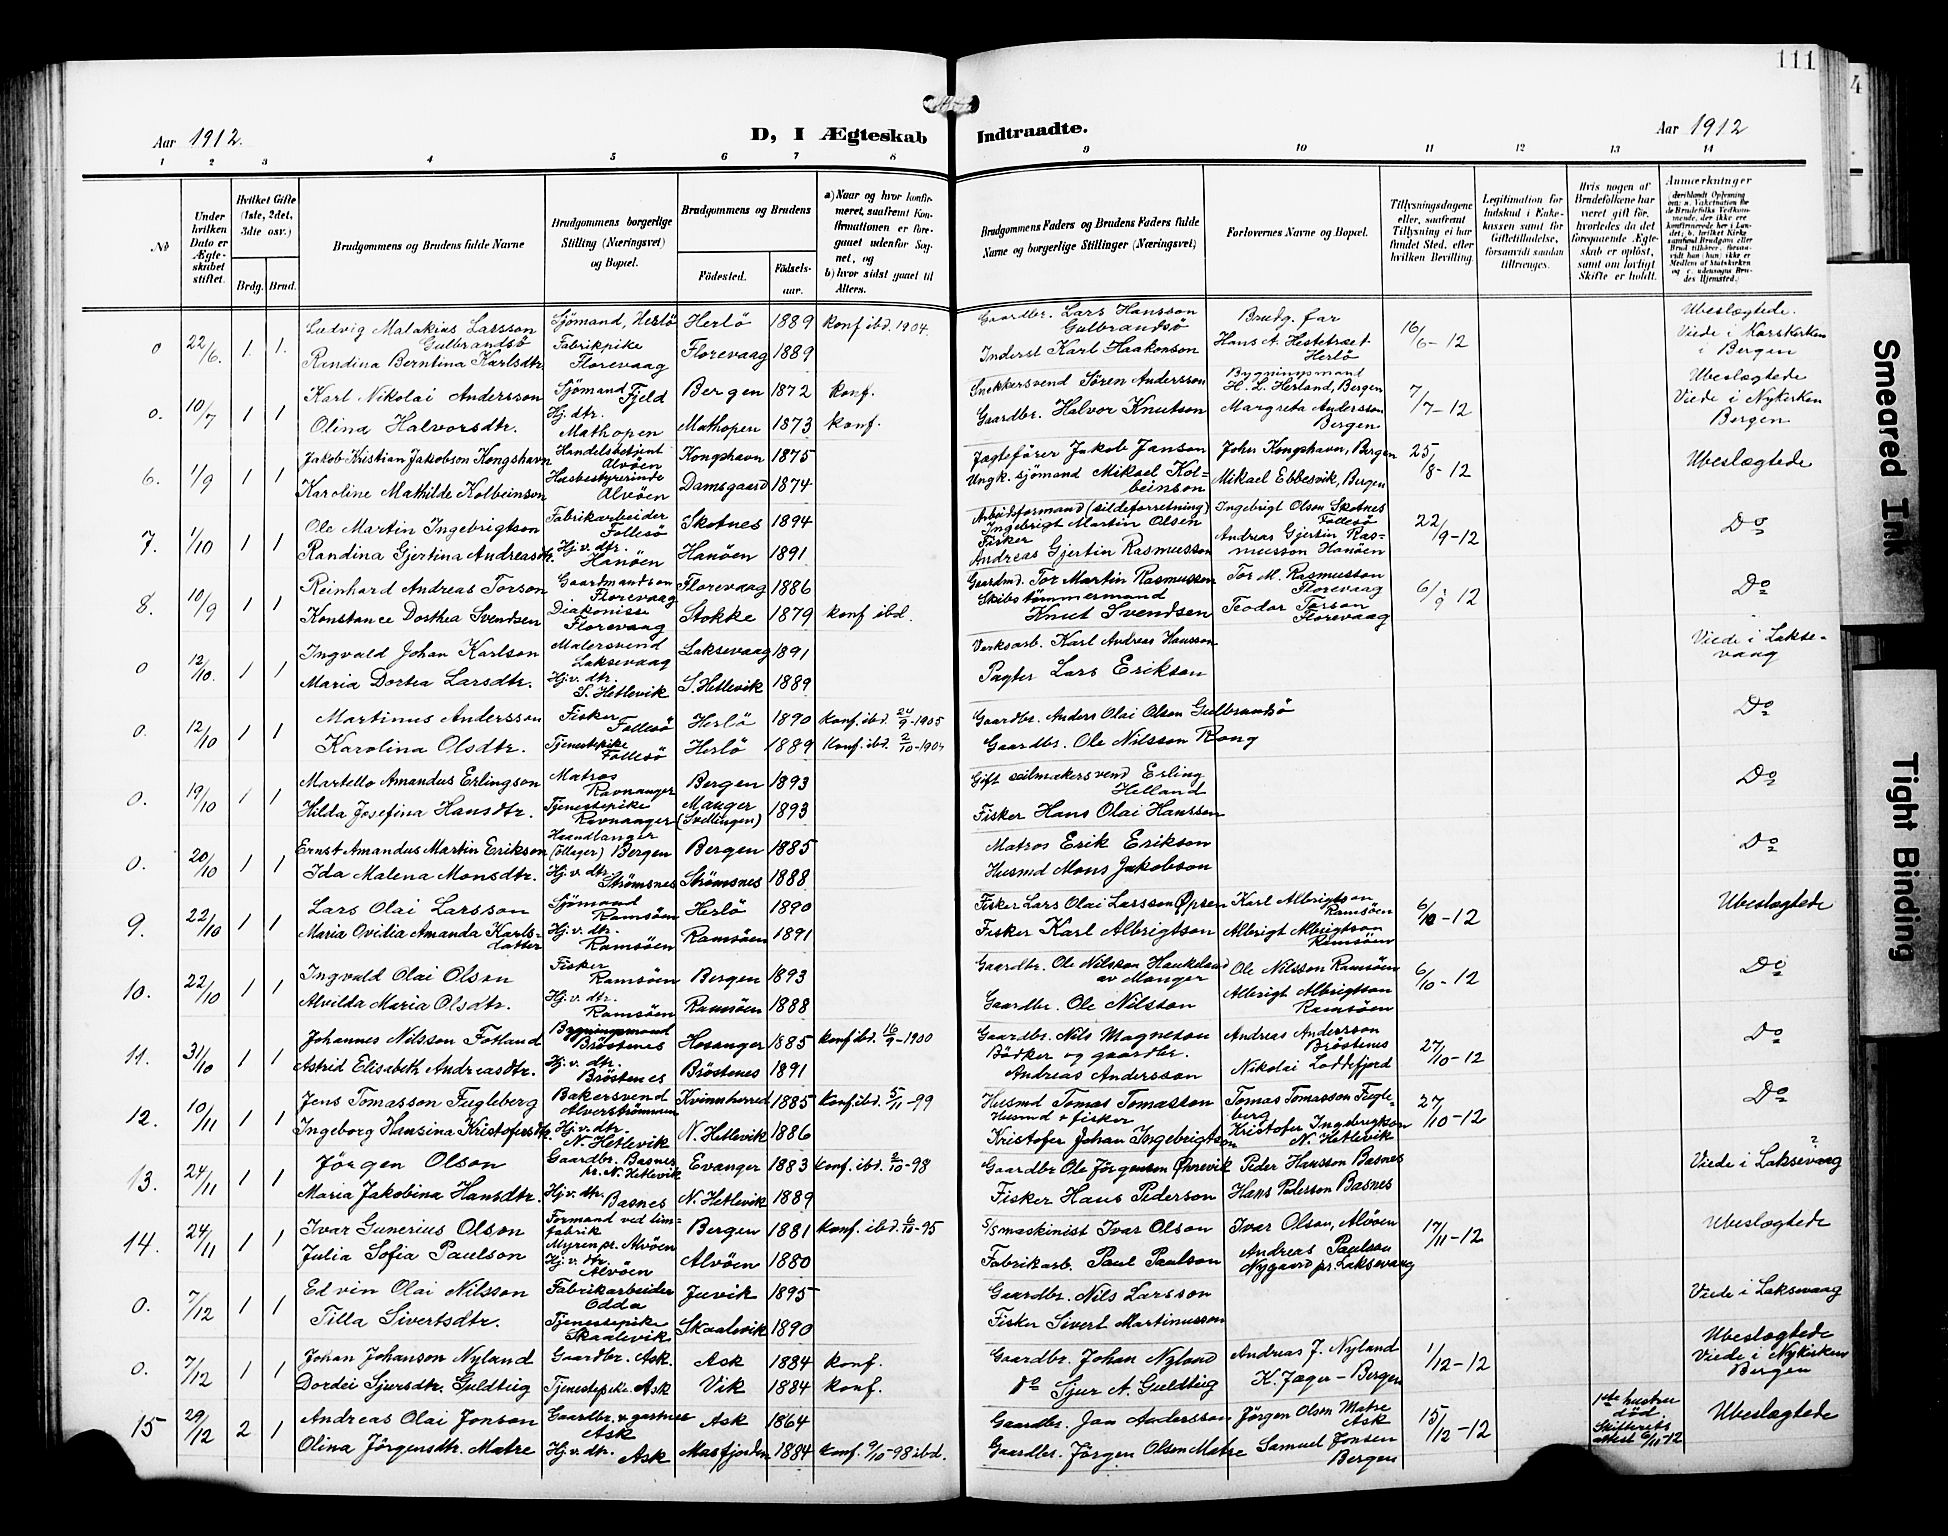 111
4
Aar 1912.
D, I Ægteskab
Indtraadte.
Aar 1912
1 2 3 4 5 6 7 8 9 10 11 12 13 14
№
Under hvilken Dato er Ægteskabet stiftet.
Hvilket Gifte (1ste, 2det, 3die osv.)
Brdg. Brud.
Brudgommens og Brudens fulde Navne
Brudgommens borgerlige Stilling (Næringsvei) og Bopæl.
Brudgommens og Brudens
Fødested. Fødsels-aar.
a) Naar og hvor konfirmeret, saafremt Konfirmationen er foregaaet udenfor Sognet, og
b) hvor sidst gaaet til Alters.
Brudgommens Faders og Brudens Faders fulde Navne og borgerlige Stillinger (Næringsvei)
Forlovernes Navne og Bopæl.
Tillysningsdagene eller, saafremt Tillysning ei har fundet Sted, efter hvilken Bevilling.
Legitimation for Indskud i Enkekassen samt for Giftetilladelse, forsaavidt saadan tiltrænges.
Hvis nogen af Brudefolkene har været gift før, hvorledes da det foregaaende Ægteskab er opløst, samt om lovligt Skifte er holdt.
Anmærkninger
0 22/6. 1. 1. Ludvig Malakius Larsson Gulbrandsø Sjömand, Herlö Herlö 1889 konf ibd. 1904. Gaardbr. Lars Hansson Gulbrandsö Brudg. far 16/6-12 Ubeslægtede. Viede i Korskirken i Bergen
Randina Berntina Karlsdtr Fabrikpike Florevaag Florevaag 1889 Inderst Karl Haakonson Hans A. Hestetræet Herlö
0. 10/7 1 1 Karl Nikolai Andersson Sjömand Fjeld Bergen 1872 konf. Snekkersvend Sören Andersson Bygningsmand H. L. Herland, Bergen 7/7-12 Ubeslægtede Viede i Nykirken Bergen
Olina Halvorsdtr. Hj. dtr. Mathopen Mathopen 1873 konf. Gaardbr. Halvor Knutson Margreta Andersson Bergen
6. 1/9 1 1 Jakob Kristian Jakobson Kongshavn Handelsbetjent Alvöen Kongshavn 1875 Jagtefører Jakob Janson Johs Kongshavn, Bergen 25/8-12 Ubeslægtede
Karoline Mathilde Kolbeinson Husbestyrerinde Alvöen Damsgaard 1874 Ungk. sjömand Mikael Kolbeinson Mikael Ebbesvik, Bergen
7. 1/10 1 1 Ole Martin Ingebrigtson Fabrikarbeider Follesö Skotnes 1894 Arbeidsformand (sildeforretning) Ingebrigt Martin Olsen Ingebrigt Olson Skotnes Follesö 22/9-12 Do
Randina Gjertina Andreasdtr. Hj. v. dtr. Hanöen Hanöen 1891 Fisker Andreas Gjertin Rasmusson Andreas Gjertin Rasmusson Hanöen
8. 10/9 1 1 Reinhard Andreas Torson Gaardmandsson Florevaag Florevaag 1886 Gaardmd. Tor Martin Rasmusson Tor M. Rasmusson Florevaag 6/9 12 Do
Konstance Dorthea Svendsen Diakonisse Florevaag Stokke 1879 konf ibd. Skibstømmermand Knut Svendsen Teodor Torson Florevaag
0 12/10. 1 1 Ingvald Johan Karlson Malersvend Laksevaag Laksevaag 1891 Verksarb. Karl Andreas Hansson Viede i Laksevaag
Maria Dortea Larsdtr. Hj. v. dtr. S. Hetlevik S. Hetlevik 1889 Pagter Lars Erikson
0. 12/10 1 1 Martinus Andersson Fisker Follesö Herlö 1890 Konf. ibd. 24/9-1905 Gaardbr. Anders Olai Olson Gulbrandsö Do
Karolina Olsdtr. Tjenestepike Follesö Herlö 1889 Konf. ibd. 2/10-1904 Gaardbr. Ole Nilsson Rong
0. 19/10 1 1 Martello Amandus Erlingson Matros Ravnanger Bergen 1893 Gift seilmakersvend Erling Helland Do
Hilda Josefina Hansdtr. Tjenestepike Ravnanger Manger (Svellingen) 1893 Fisker Hans Olai Hansson
0. 20/10 1 1 Ernst Amandus Martin Erikson Haandlanger (Ollager) Bergen Bergen 1885 Matros Erik Erikson Do
Ida Malena Monsdtr. Hj. v. dtr. Strømsnes Strømsnes 1888 Husmd Mons Jakobson
9. 22/10 1 1 Lars Olai Larsson Sjömand Ramsöen Herlö 1890 Fisker Lars Olai Larsson Öpsen Karl Albrigtson Ramsöen 6/10-12 Ubeslægtede
Maria Ovidia Amanda Karlsdatter Hj. v. dtr. Ramsöen Ramsöen 1891 Fisker Karl Albrigtson Albrigt Albrigtson Ramsöen
10. 22/10 1 1 Ingvald Olai Olson Fisker Ramsöen Bergen 1893 Gaardbr. Ole Nilsson Haukeland av Manger Ole Nilsson Ramsöen 6/10-12 Do
Alvilda Maria Olsdtr. Hj. v. dtr. Ramsöen Ramsöen 1888 Gaardbr. Ole Nilsson Albrigt Albrigtson Ramsöen
11. 31/10 1 1 Johannes Nilsson Fotland Bygningsmand Bröstenes Hosanger 1885 konf ibd. 16/9-1900 Gaardbr. Nils Magneson Andreas Andersson Bröstenes 27/10-12 Do
Astrid Elisabeth Andreasdtr. Hj. v. dtr. Bröstenes Bröstenes 1891 Bödker og gaardbr. Andreas Andersson Nikolai Loddefjord
12. 10/11 1 1 Jens Tomasson Fugleberg Bakersvend Alverströmmen Kvinnherred 1885 Konf. ibd. 5/11-99 Husmd Tomas Tomasson Tomas Tomasson Fugleberg 27/10-12 Do
Ingeborg Hansina Kristofersdtr Hj. v. dtr. N. Hetlevik N. Hetlevik 1886 Husmd & fisker Kristofer Johan Ingebrigtson Kristofer Ingebrigtson N. Hetlevik
13. 24/11 1 1 Jörgen Olson Gaardbr. Basnes pr. N. Hetlevik Evanger 1883 Konf. ibd. 2/10-98 Gaardbr Ole Jörgenson Övrevik Peder Hansson Basnes Viede i Laksevaag ?
Maria Jakobina Hansdtr. Hj. v. dtr. Basnes N. Hetlevik 1889 Fisker Hans Pederson Hans Pedersson Basnes
14. 24/11 1 1 Ivar Gunerius Olson Formand ved limfabrik Myren pr. Alvöen Bergen 1881 Konf. ibd. 6/10-95 S/Smaskinist Ivar Olson Ivar Olson, Alvöen 17/11-12 Ubeslægtede
Julia Sofia Paulson Hj. v. dtr. Alvöen Alvöen 1880 Fabrikarb. Paul Paulson Andreas Paulson Nygaard pr. Laksevaag
0. 7/12 1 1 Edvin Olai Nilsson Fabrikarbeider Odda Juvik 1895 Gaardbr. Nils Larsson Viede i Laksevaag
Tilla Sivertsdtr. Tjenestepike Skaalevik Skaalevik 1890 Fisker Sivert Martinusson
0. 7/12 1 1 Johan Johanson Nyland Gaardbr. Ask. Ask 1884 konf. Gaardbr. Johan Nyland Andreas J. Nyland 1/12-12 Ubeslægtede Viede i Nykirken Bergen
Dordei Sjursdtr. Guldteig Tjenestepike. Ask Vik 1884 konf. do Sjur A. Guldteig K. Jæger - Bergen
15 29/12 2 1 Andreas Olai Jonson Gaardbr. & gartner Ask Ask 1864 Gaardbr. Jon Andersson Jörgen Olsen Matre Ask 15/12-12 1ste hustru död Skifterets attest 6/11-12 Ubeslægtede
Olina Jörgensdtr. Matre Hj. v. dtr. Ask Masfjorden 1884 Konf. 9/10-98 ibd. Gaardbr. Jörgen Olsen Matre Samuel Jonsen Bergen
Smeared Ink
Tight Binding